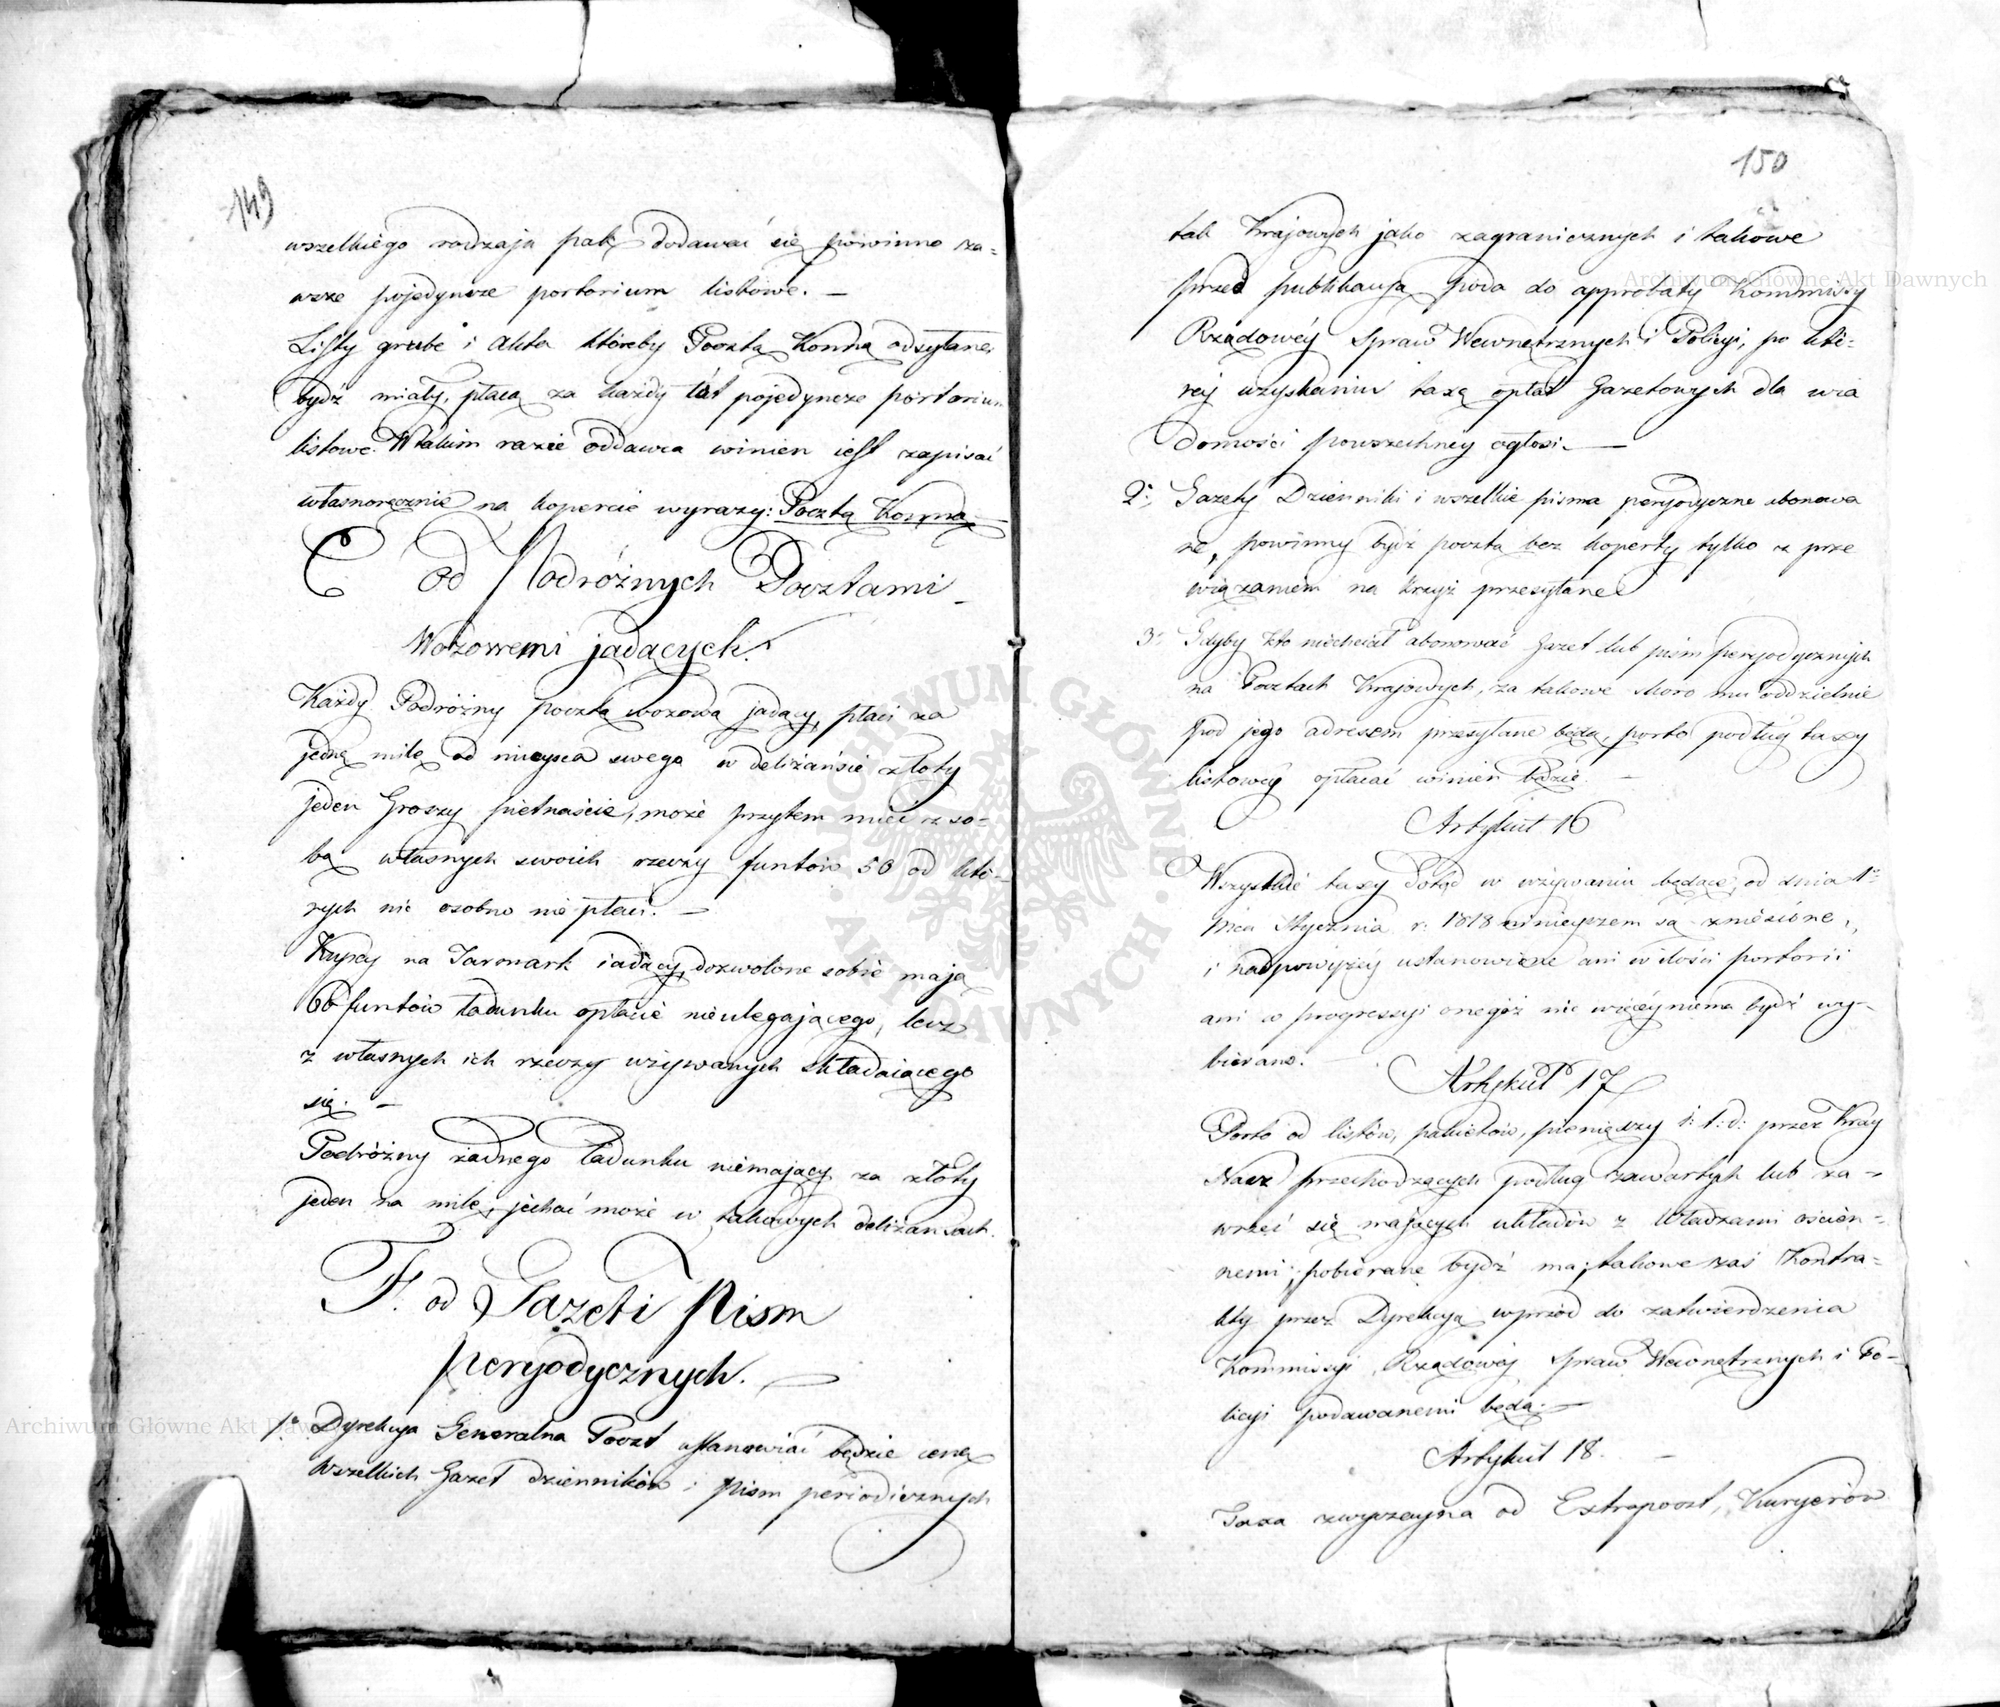 149
wszelkiego rodzaju pak dodawać się powinno za=
wsze pojedyncze portorium listowe. —
Listy grube i Akta któreby Pocztą Konną odsyłane
bydź miały, płacą za każdy łót pojedyncze portorium
listowe. W takim razie oddawca winien iest zapisać
własnoręcznie na kopercie wyrazy: Pocztą Konną
od Podróżnych Pocztami
Wozowemi jadących.
Każdy Podróżny pocztą wozową jadący, płaci za
jedną milę od mieysca swego w deliżansie złoty
jeden Groszy piętnaście, może przytem mieć z so=
bą własnych swoich rzeczy funtów 50 od któ=
rych nic osobno nie płaci. —
Kupcy na Jarmark iadący, dozwolone sobie mają
60 funtów ładunku opłacie nieulegającego, lecz
z własnych ich rzeczy używanych składaiącego
się. —
Podróżny żadnego ładunku niemający za złoty
jeden na milę, jechać może w takowych deliżansach.
F. od Gazet i Pism
peryodycznych. —
1o Dyrekcya Generalna Poczt ustanowiać będzie cenę
wszelkich Gazet dzienników i pism periodicznych
150
tak Krajowych jako zagranicznych i takowe
przed publikacyą poda do approbaty Kommissyi
Rządowéy Spraw Wewnętrznych i Policyi, po któ=
réy uzyskaniu taxę opłat Gazetowych dla wia
domości powszechney ogłosi. —
2o, Gazety Dzienniki i wszelkie pisma peryodyczne abonowa
ne, powinny bydź pocztą bez koperty tylko z prze
wiązaniem na krzyż przesyłane
3o Gdyby kto niechciał abonować Gazet lub pism peryodycznych
na Pocztach Krajowych, za takowe skoro mu oddzielnie
pod jego adresem przesyłane będą, porto podług taxy
listowéy opłacać winien będzie. —
Artykuł 16
Wszystkie taxy dotąd w używaniu będące, od dnia 1o
Mca Stycznia r: 1818 ninieyszem są zniesione,
i nad powyżéy ustanowione ani w ilości portorii
ani w progressyi onegóż nic więcéy niema bydź wy=
bierano.
Artykuł 17
Porto od listów, pakietów, pieniędzy i: t: d: przez Kray
Nasz przechodzących podług zawartych lub za=
wrzeć się mających układów z Władzami ościen=
nemi, pobierane bydź ma, takowe zaś Kontra=
kty przez Dyrekcyą wprzód do zatwierdzenia
Kommissyi Rządowéj Spraw Wewnętrznych i Po=
licyi podawanemi będą. —
Artykuł 18. —
Taxa zwyczayna od Extrapoczt, Kuryerów
Archiwum Główne Akt Dawnych
Archiwum Główne Akt Dawnych
ARCHIWUM GŁÓWNE AKT DAWNYCH